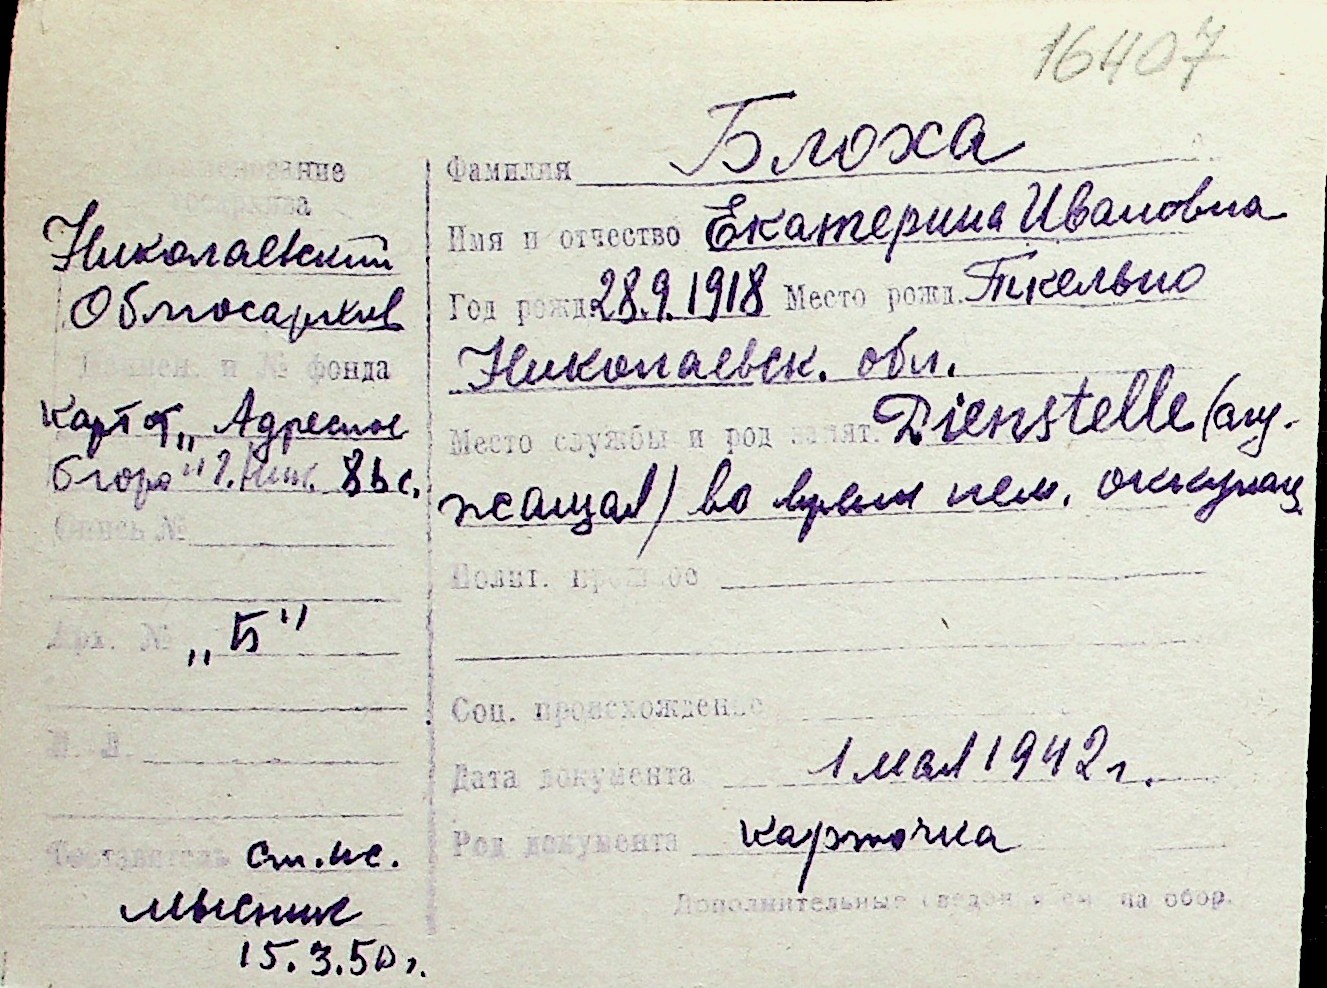 16407
Наименование
госархива
Николаевский
Облгосархив
Наимен. и № фонда
Картот. „Адресное
бюро" г. Ник.
Опись №
Арх. № „Б"
Составитель ст. н.с.
Мысник
15.3.50 г.
Фамилия Блоха
Имя и отчество Екатерина Ивановна
Год рожд. 28.9.1918 Место рожд.
Николаевск. обл.
Место службы и род занят. Dienstelle (слу-
жащая) во время нем. оккупац.
Полит. прошлое
Соц. происхождение
Дата документа 1 мая 1942 г.
Род документа карточка
Дополнительные сведения см. на обор.